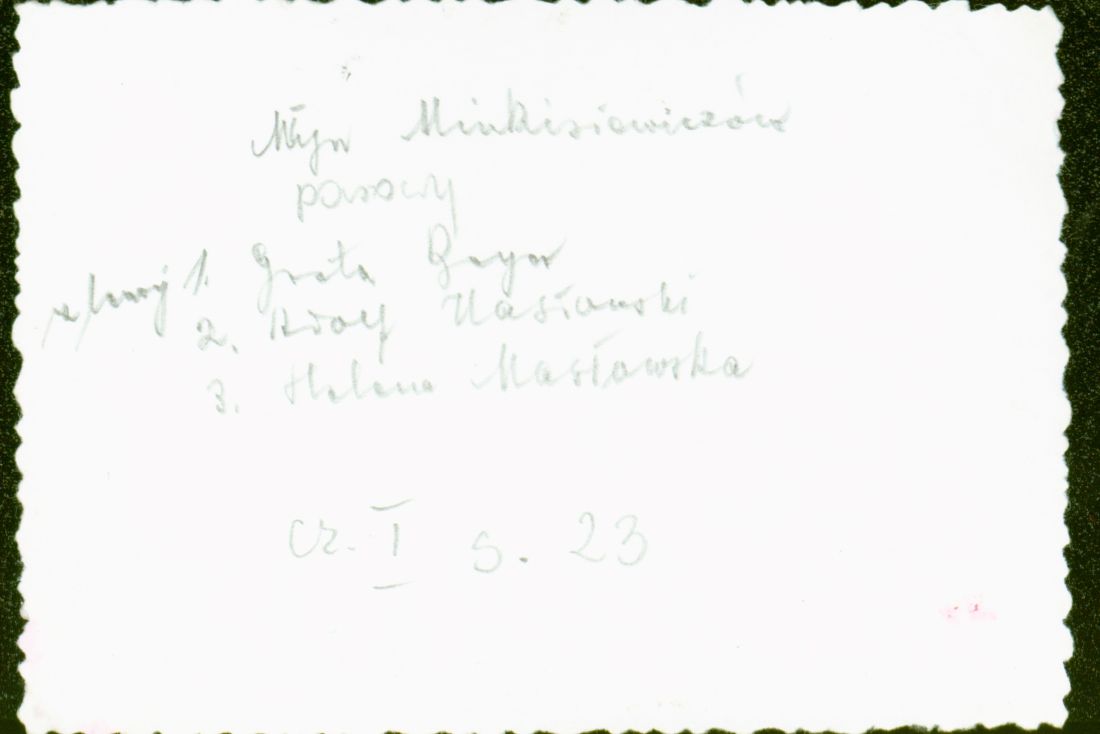 Młyn Minkisiewiczów
parowy
z lewej 1. Greta Beyer
2. Adolf Masłowski
3. Helena Masłowska
cz. I s. 23